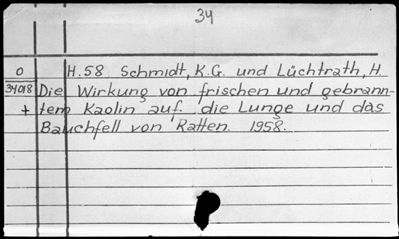 34
O H.58 Schmidt, K.G. und Lüchtrath, H.
34018 Die Wirkung von frischen und gebrann-
+ tem Kaolin auf die Lunge und das
Bauchfell von Ratten 1958.